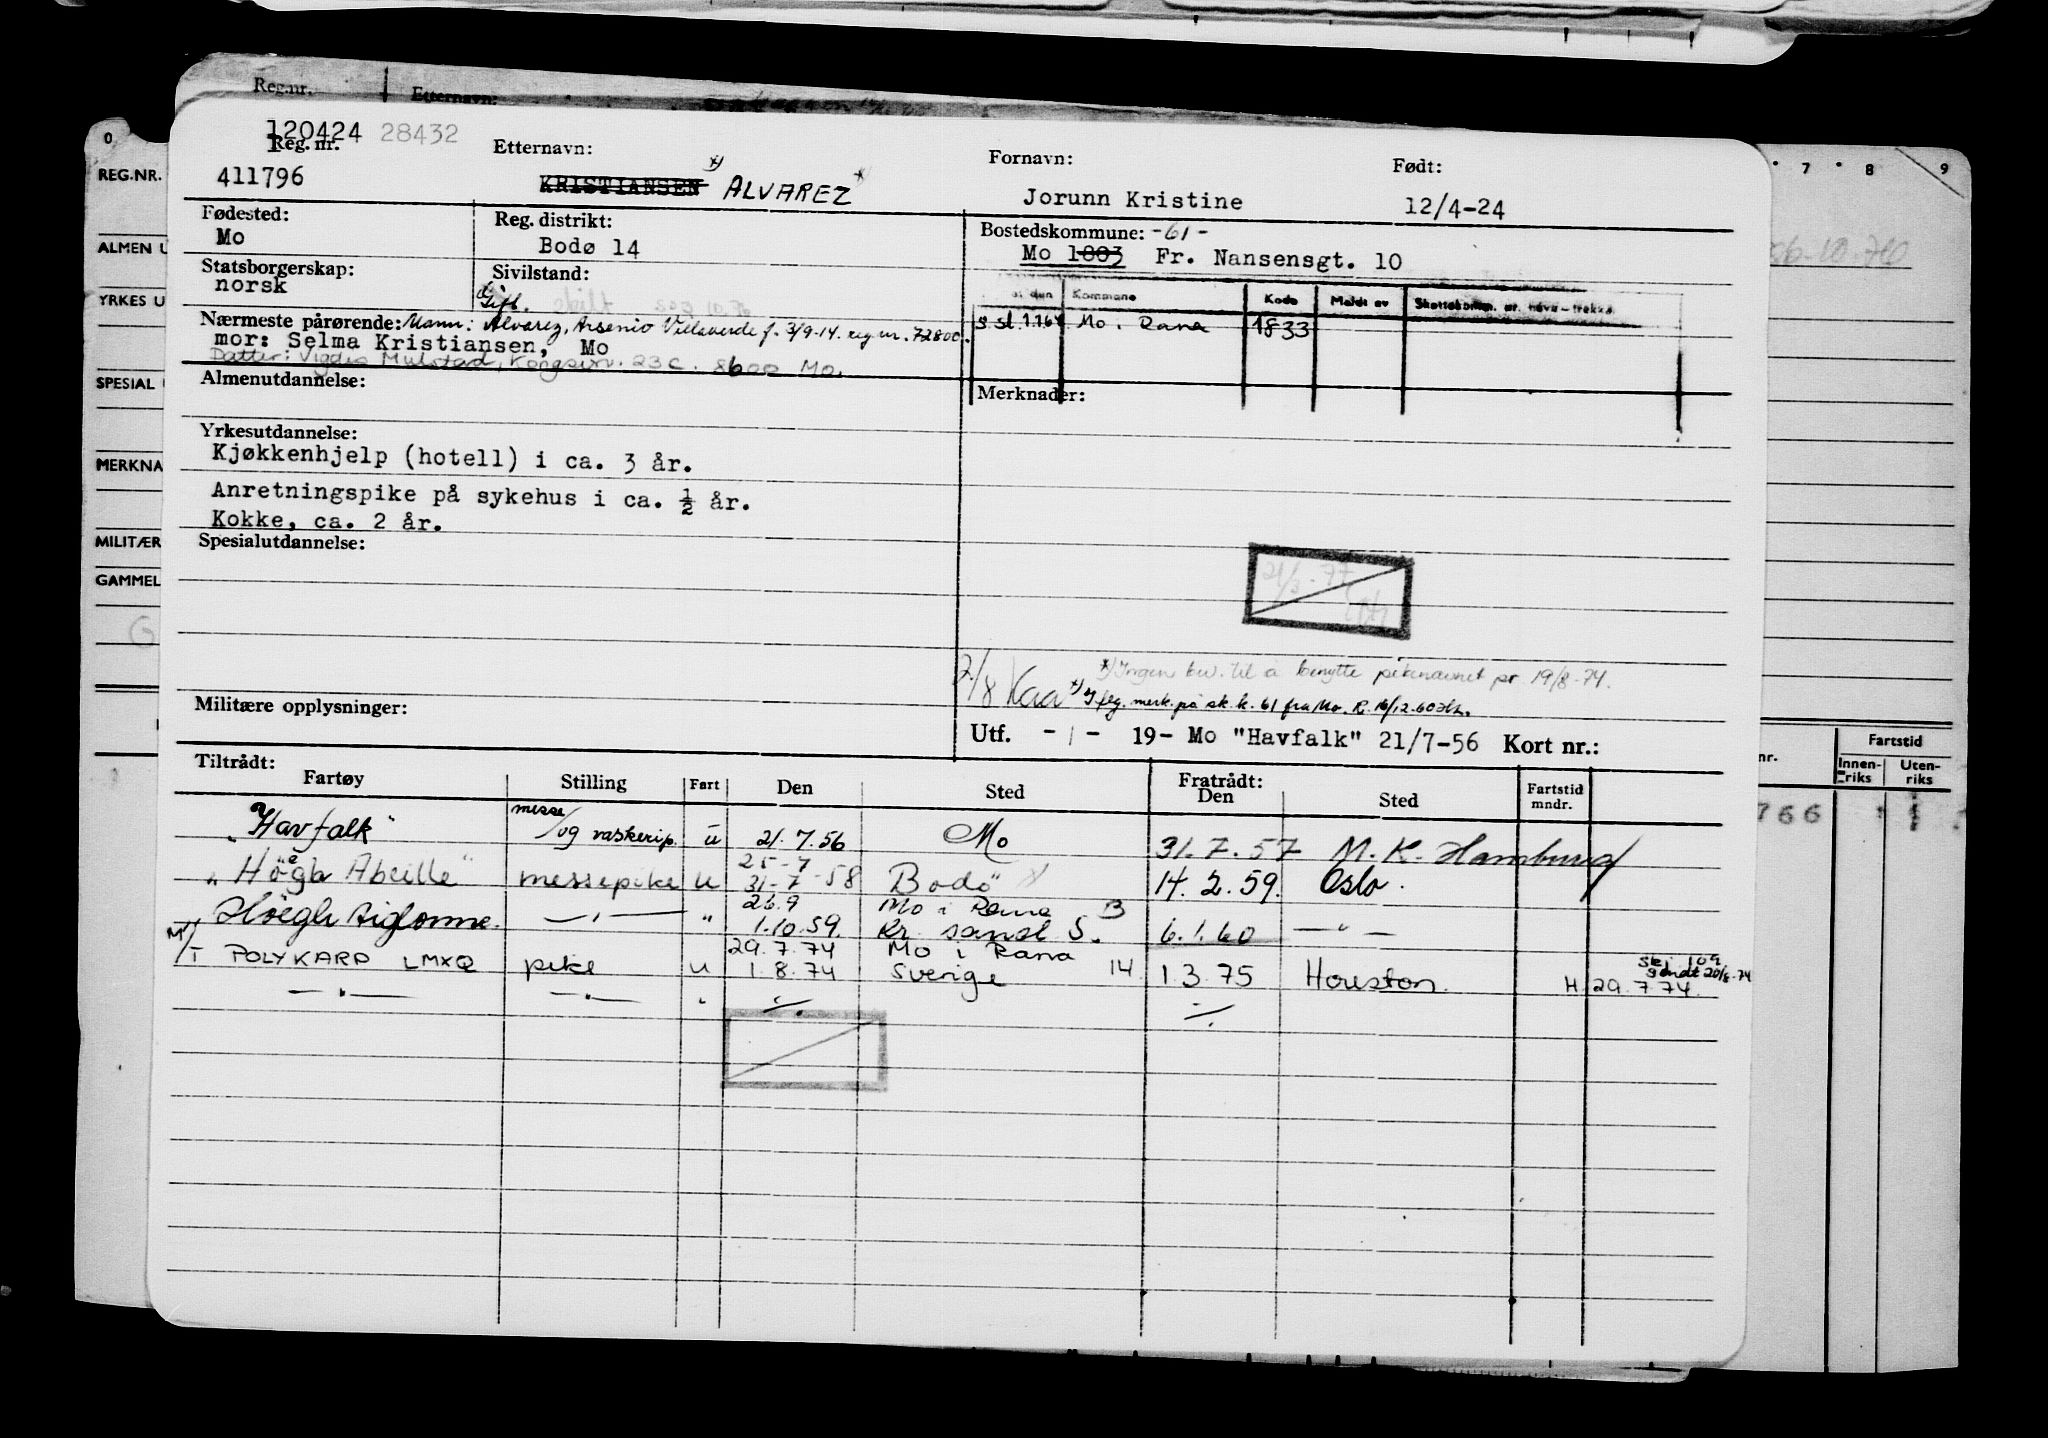 Reg.nr. Etternavn:
120424 28432
Reg. nr. Etternavn: Fornavn: Født:
411796 KRISTIANSEN *) ALVAREZ * Jorunn Kristine 12/4-24
Fødested: Reg. distrikt: Bostedskommune: -61-
Mo Bodø 14 Mo 1803 Fr. Nansensgt. 10
Statsborgerskap: Sivilstand:
norsk Gift.
Kommune Kode Meldt av
1.1.64 Mo i Rana 1833
Nærmeste pårørende: Mann: Alvarez, Arsenio Villaverde f. 3/9-14. reg nr. 72800.
mor: Selma Kristiansen, Mo
Datter: Vigdis Mulstad, 23C. 8600 Mo.
Almenutdannelse: Merknader:
Yrkesutdannelse:
Kjøkkenhjelp (hotell) i ca. 3 år.
Anretningspike på sykehus i ca. ½ år.
Kokke, ca. 2 år.
Spesialutdannelse:
21/3-77
*) Ingen bev. til å benytte pikenavnet pr 19/8-74.
2/8 Kaa *) I flg. merk. på sk.k. 61 fra Mo. R. 16/12.60
Militære opplysninger:
Utf. -1- 19- Mo "Havfalk" 21/7-56 Kort nr.:
Tiltrådt: Fratrådt:
Fartøy Stilling Fart Den Sted Den Sted Fartstid mndr.
"Havfalk" messe og vaskerip. u 21.7.56 Mo 31.7.57 M.K. Hamburg
25-7
"Högh Abeille" messepike u 31-7-58 Bodö 14.2.59. Oslo.
26.9 Mo i Rana B
Höegh Aiglonne. —"— " 1.10.59. Kr. sand S. 6.1.60 —"—
29.7.74 Mo i Rana
M/T POLYKARP LMXQ pike u 1.8.74 Sverige 14 1.3.75 Houston. H 29.7.74.
sendt 20/8-74
—"— —"— " ÷ ÷
0 7 8 9
REG.NR.
ALMEN U
YRKES U
SPESIAL
MERKNA
MILITÆR
GAMMEL
G
nr. Fartstid
Innen-riks Uten-riks
766